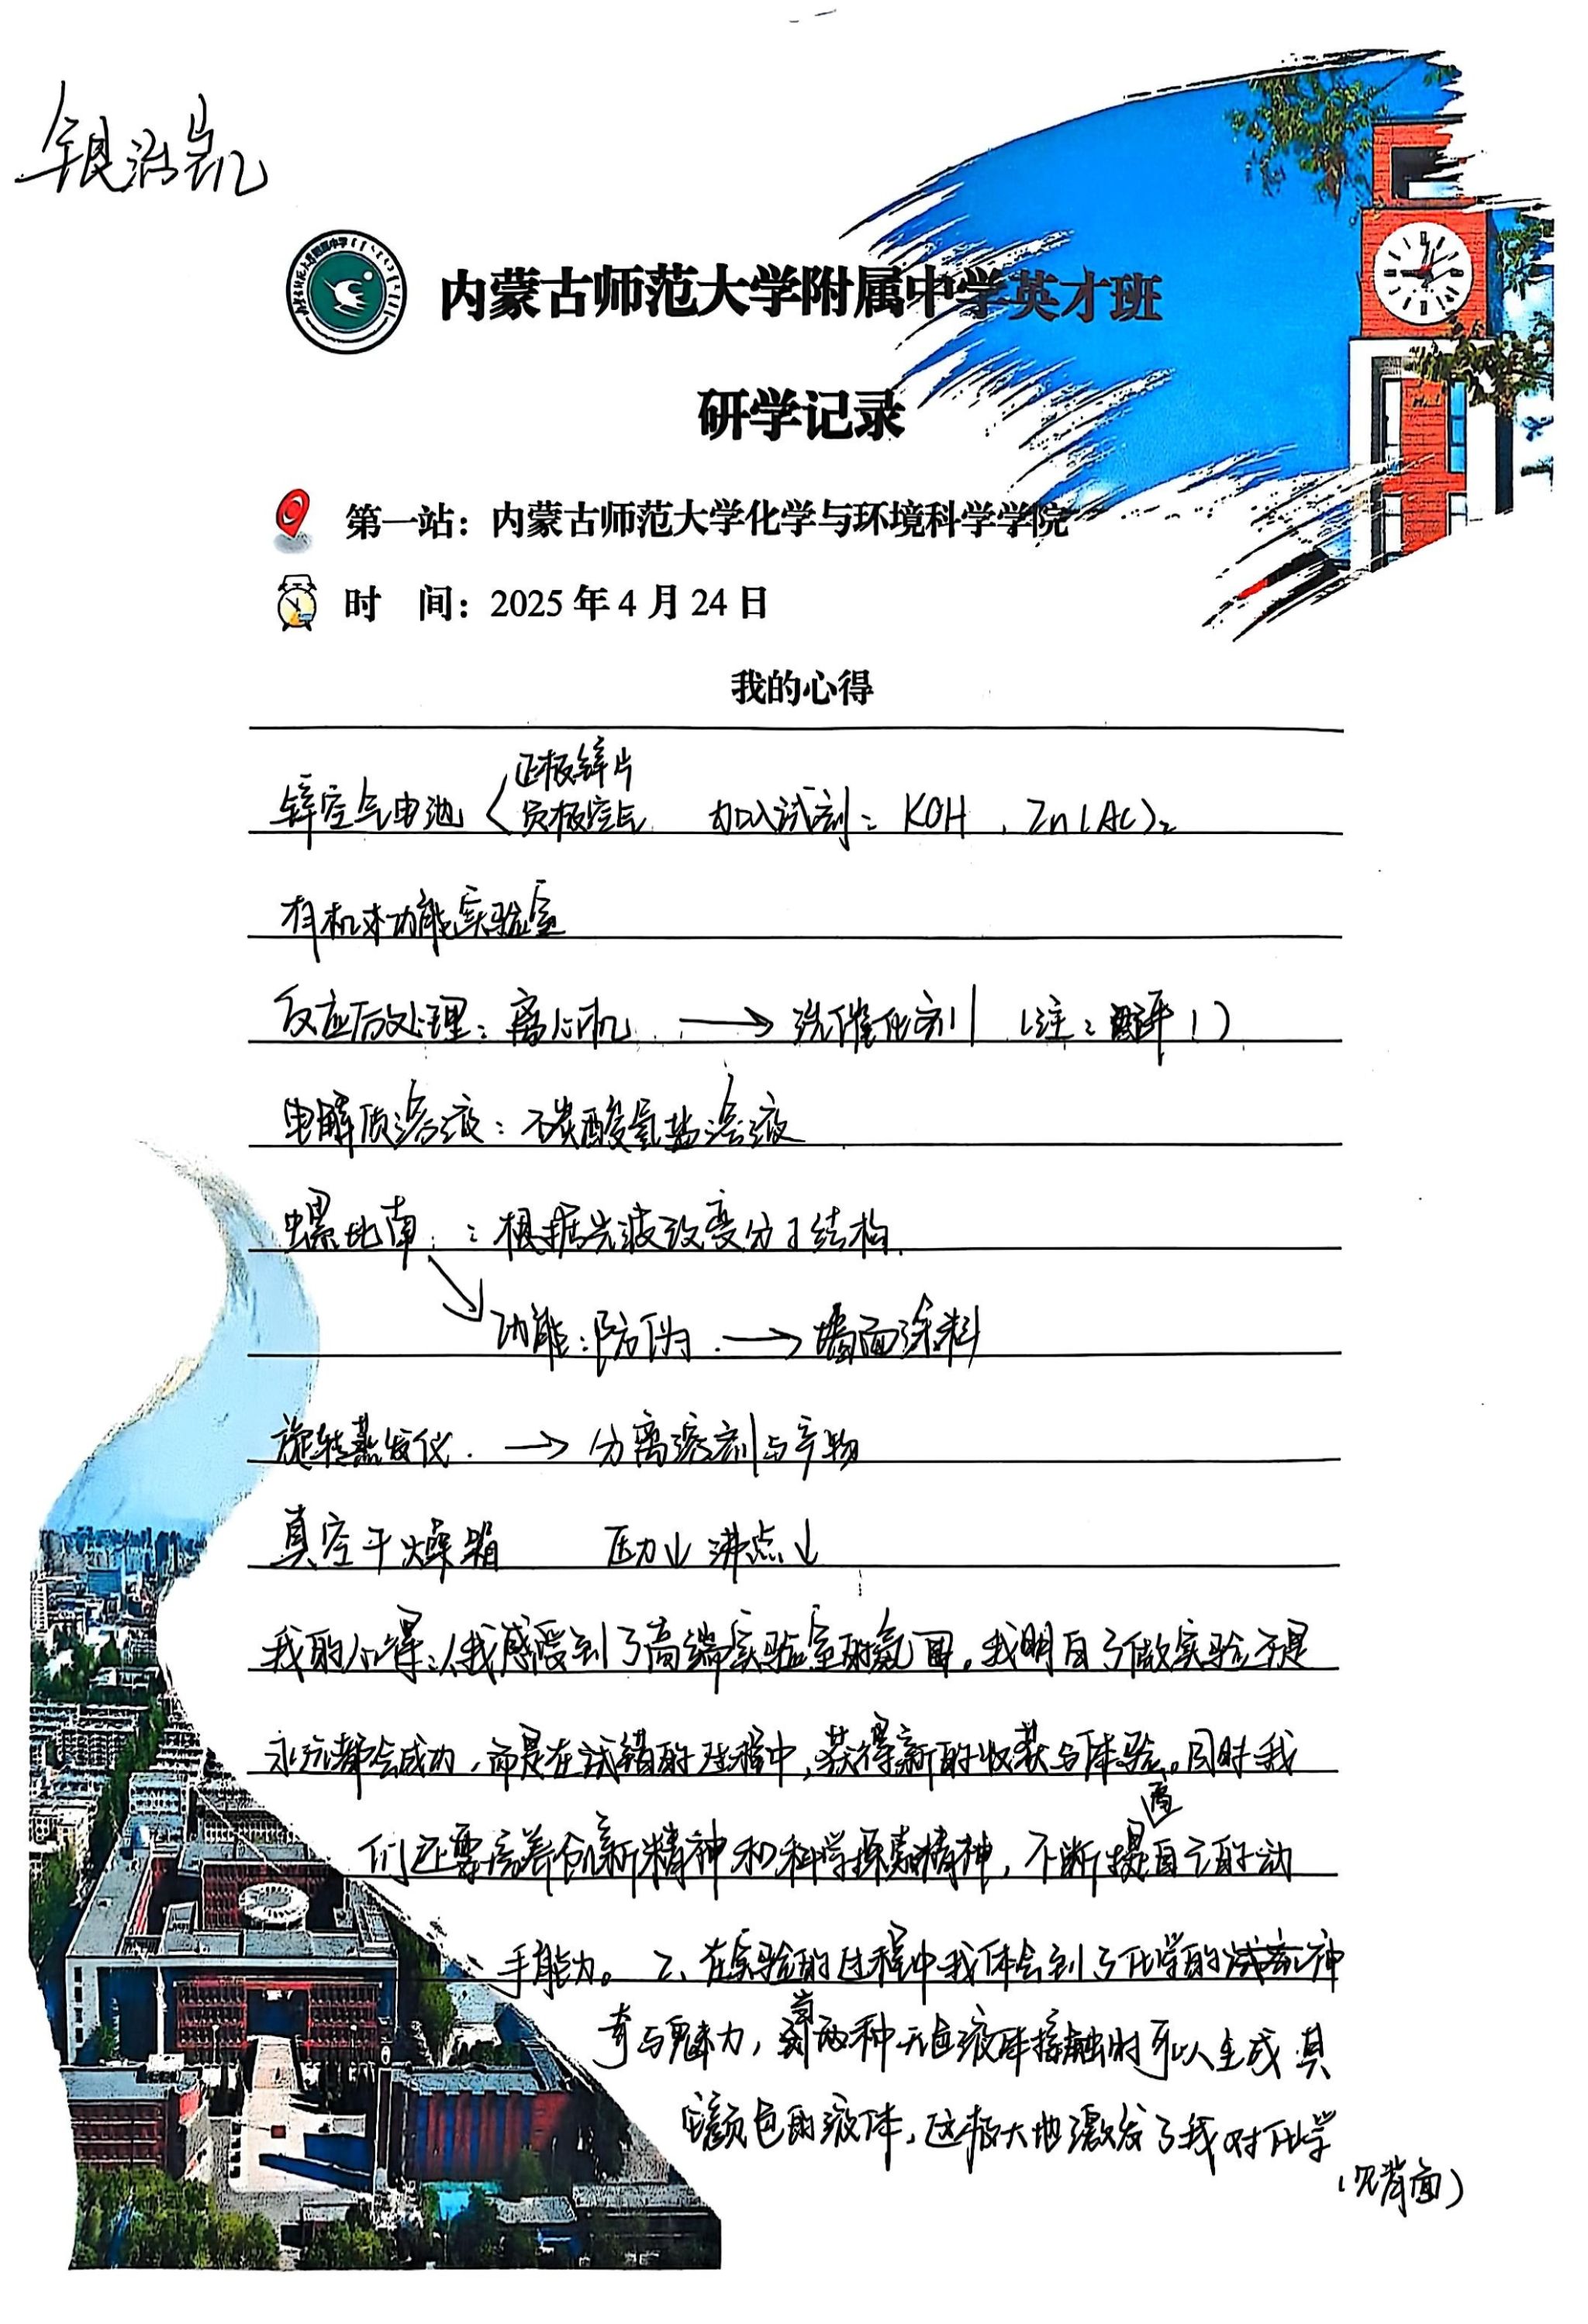 内蒙古师范大学附属中学英才班
研学记录
第一站：内蒙古师范大学化学与环境科学学院
时 间：2025年4月24日
我的心得
正极锌片
锌空气电池 负极空气 加入试剂：KOH、Zn(AC)₂
有机功能实验室
反应后处理：离心机 → 洗催化剂（注：配平！）
电解质溶液：碳酸氢盐溶液
螺吡喃：根据光波改变分子结构
功能：防伪 → 墙面涂料
旋转蒸发仪 → 分离溶剂与产物
真空干燥箱 压力↓ 沸点↓
我的心得：1、我感受到了高端实验室的氛围。我明白了做实验不是
永远都会成功，而是在试错的过程中，获得新的收获与体验。同时我
们还要培养创新精神和科学探索精神，不断提高自己的动
手能力。2、在实验的过程中我体会到了化学的神
奇与魅力，当两种无色液体接触时可以生成具
颜色的液体，这极大地激发了我对化学
（见背面）